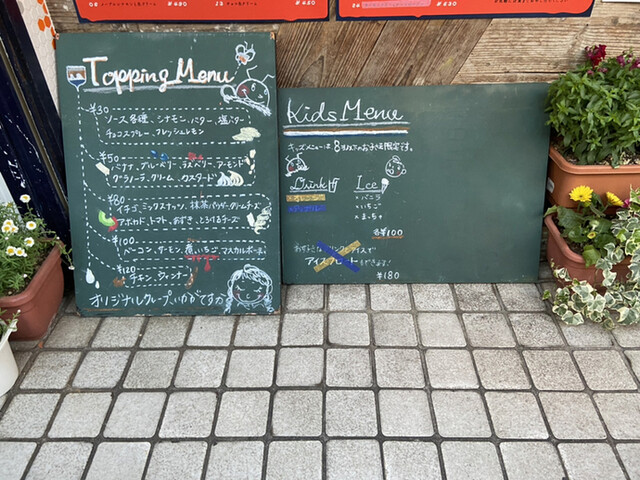 Topping Menu
¥30
ソース各種、シナモン、バター、塩バター
チョコスプレー、フレッシュレモン
¥50
バナナ、ブルーベリー、ラズベリー、アーモンド
グラノーラ、クリーム、カスタード
¥80
イチゴ、ミックスナッツ、抹茶パウダー、クリームチーズ
アボカド、トマト、あずき、とろけるチーズ
¥100
ベーコン、サーモン、
いちご、マスカルポーネ
¥120
チキン、
オリジナルクレープいかがですか
Kids Menu
キッズメニューは8才以下のお子さま限定です。
Drink
Ice
オレンジ
バニラ
いちご
まっちゃ
各¥100
アイス
できます!
¥180